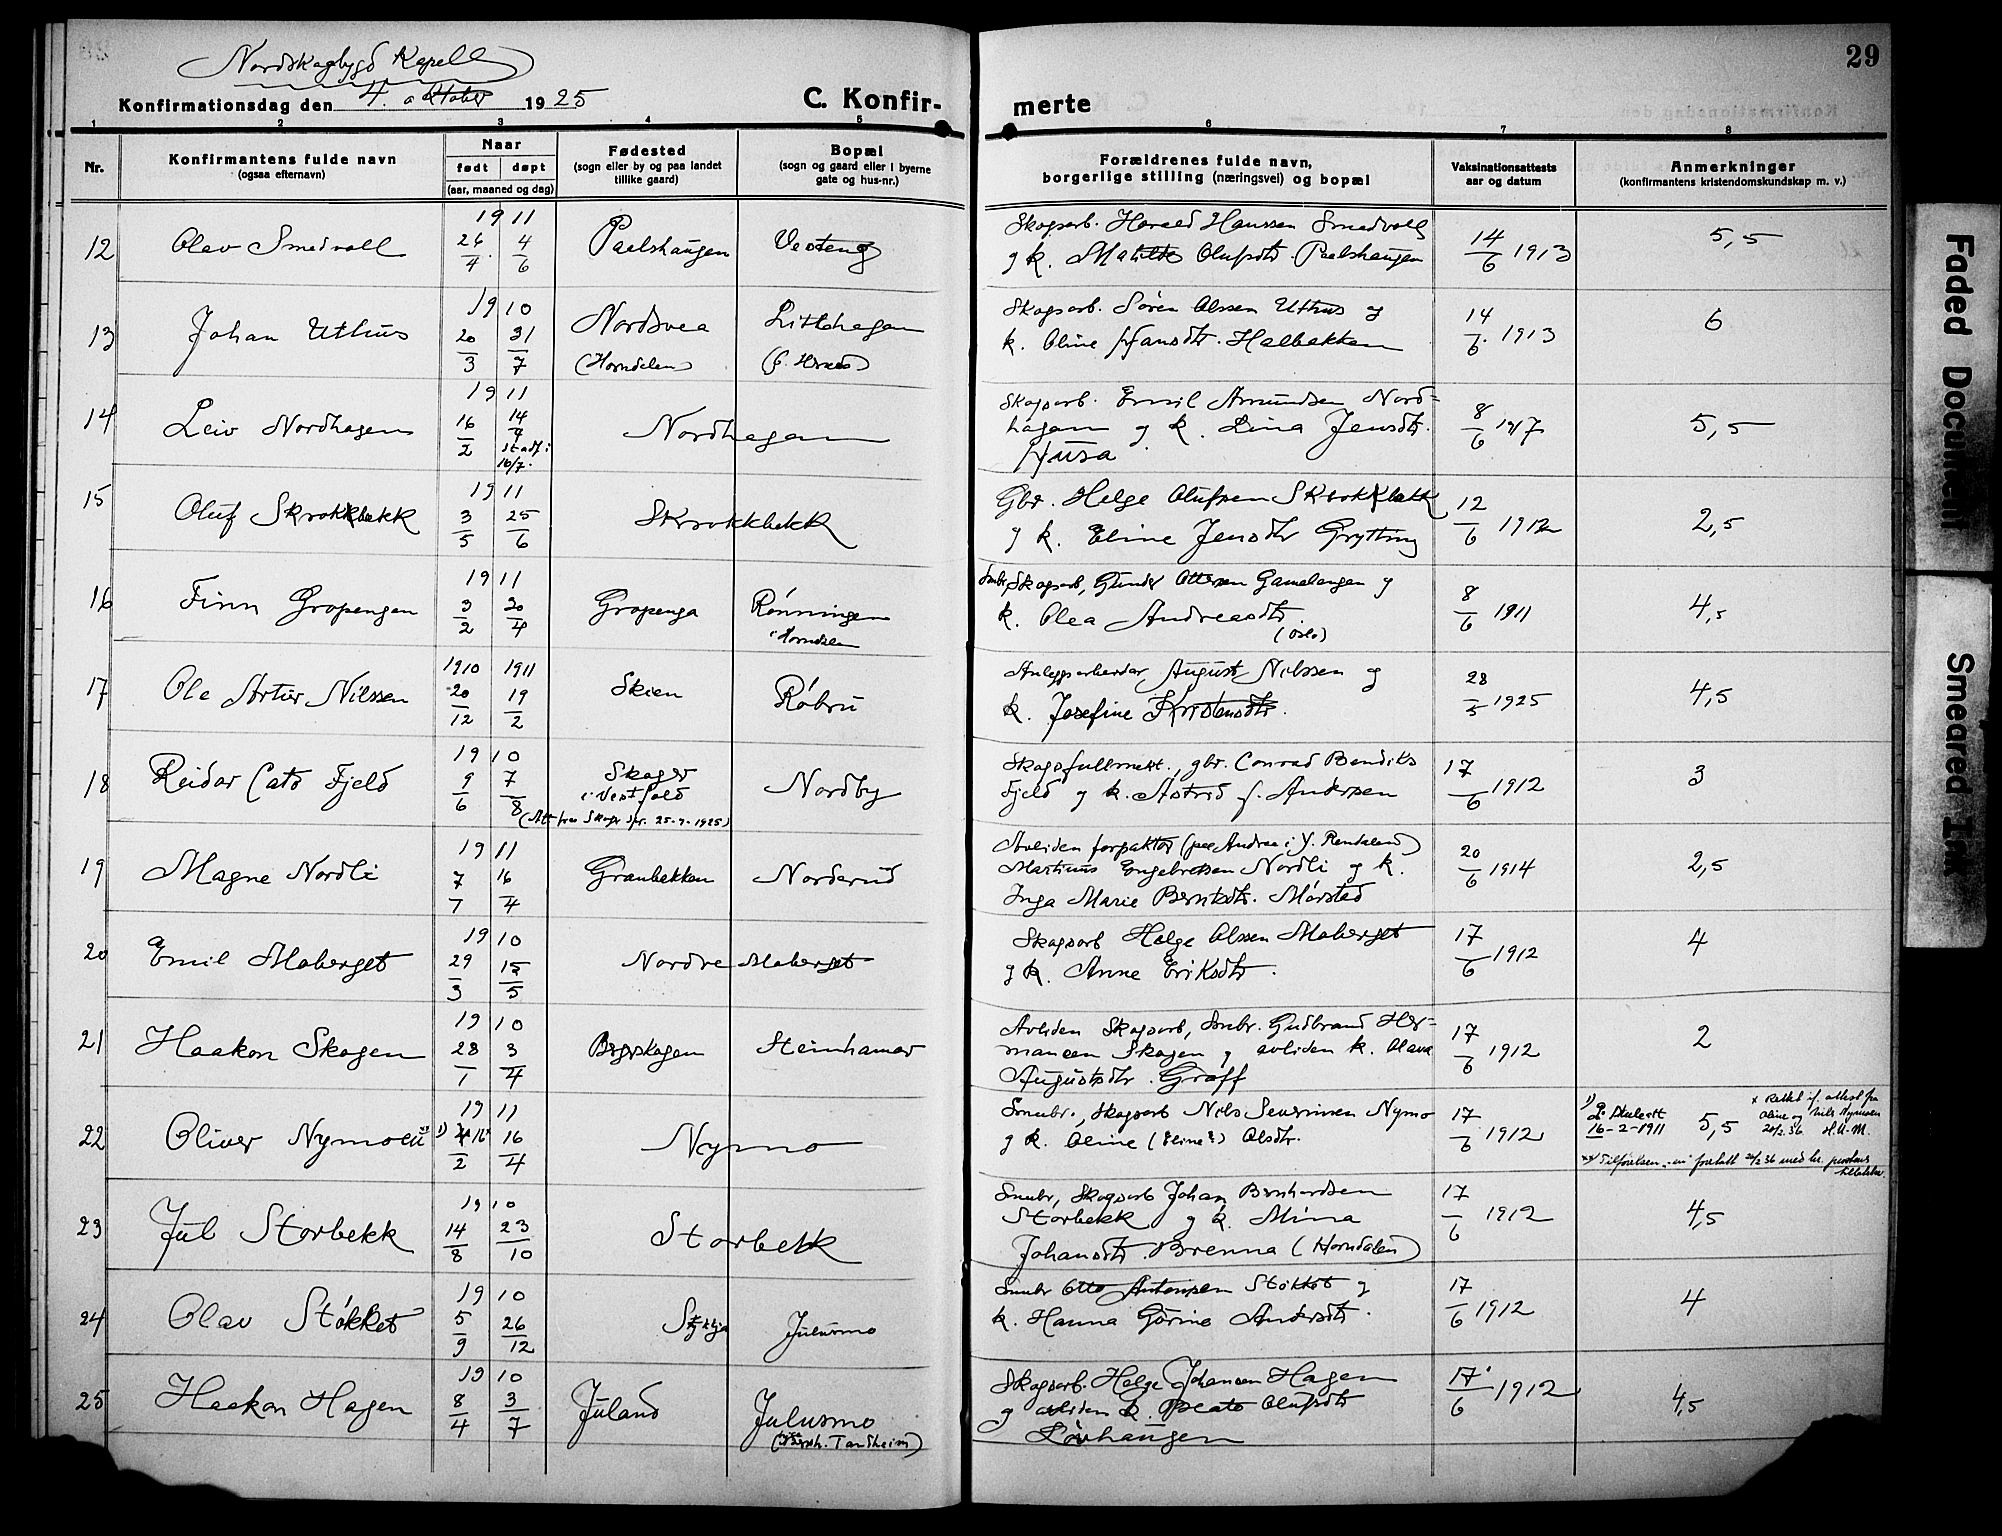 Nordskogbygd Kapell
Konfirmationsdag den 4. oktober 1925
C. Konfir-
merte
29
1 2 3 4 5 6 7 8
Nr.
Konfirmantens fulde navn
(ogsaa efternavn)
Naar
født døpt
(aar, maaned og dag)
Fødested
(sogn eller by og paa landet
tillike gaard)
Bopæl
(sogn og gaard eller i byerne
gate og hus-nr.)
Forældrenes fulde navn,
borgerlige stilling (næringsvei) og bopæl
Vaksinationsattests
aar og datum
Anmerkninger
(konfirmantens kristendomskundskap m. v.)
12 Olav Smedvoll 1911 26/4 4/6 Paalshaugen Vesteng
Skogsarb. Harald Hanssen Smedvoll
og k. Matilde Olufsdtr. Paalshaugen
14/6 1913 5,5
13 Johan Uthus 1910 20/3 31/7 Nordsvea (Horndalen) Littlehagen
Skogsarb. Søren Olssen Uthus og
k. Oline Hansdtr. Halbakken
14/6 1913 6
14 Leiv Nordhagen 1911 16/2 14/4 stadf. 16/7. Nordhagen
Skogsarb. Emil Amundsen Nord-
hagen og k. Lina Jensdtr.
Husa
8/6 1917 5,5
15 Oluf Skrokkbekk 1911 3/5 25/6 Skrokkbekk
Gbr. Helge Olufsen Skrokkbekk
og k. Eline Jensdtr Grytting
12/6 1912 2,5
16 Finn Gropengen 1911 3/2 20/4 Gropenga Rønningen
i Horndalen
Smbr, Skogsarb, Gunder Ottersen Gamelengen og
k. Olea Andreasdtr.
(Oslo)
8/6 1911 4,5
17 Ole Artur Nilssen 1910 20/12 1911 19/2 Skien Røbru
Anleggsarbeider August Nilssen og
k. Josefine Kristensdtr.
28/5 1925 4,5
18 Reidar Cato Fjeld 1910 9/6 7/8 Skoger
i Vestfold Nordby
(Att fra Skoger spr. 25-7-1925)
Skogsfullmekt., gbr. Conrad Bendiks
Fjeld og k. Astrid f. Andersen
17/6 1912 3
19 Magne Nordli 1911 7/7 16/4 Granbakken Norderud
Avliden forpakter (paa Andraa i Y. Rendalen)
Martinus Engebretsen Nordli og k.
Inga Marie Berntsdtr. Mørstad
20/6 1914 2,5
20 Emil Moberget 1910 29/3 15/5 Nordre Moberget
Skogsarb Helge Olssen Moberget
og k. Anne Eriksdtr.
17/6 1912 4
21 Haakon Skogen 1910 28/1 3/4 Bergskogen Steinhamar
Avliden Skogsarb, Smbr. Gudbrand Her-
mansen Skogen og avliden k. Olava
Augustsdtr. Graff
17/6 1912 2
22 Oliver Nymoen 1911 16/2 16/4 Nymo
Smbr., Skogsarb Nils Severinsen Nymo
og k. Oline (Eline?) Olsdtr.
17/6 1912 5,5
16-2-1911
x Rettet if. attest fra
Oline og Nils Nymoen
20/2.36. H.U.M.
xx) Tilføielsen "en" foretatt 20/2 36 med hr. prostens
tillatelse.
23 Jul Storbekk 1910 14/8 23/10 Storbekk
Smbr, Skogsarb Johan Bernhardsen
Storbekk og k. Mina
Johansdtr. Brenna (Horndalen)
17/6 1912 4,5
24 Olav Støkket 1910 5/9 26/12 Julusmo
Smbr Otto Antonsen Støkket og
k. Hanna Gørine Andersdtr.
17/6 1912 4
25 Haakon Hagen 1910 8/4 3/7 Juland Julusmo
Tandheim)
Skogsarb. Helge Johansen Hagen
og avliden k. Beate Olufsdtr
Løvhaugen
17/6 1912 4,5
Faded Document
Smeared Ink